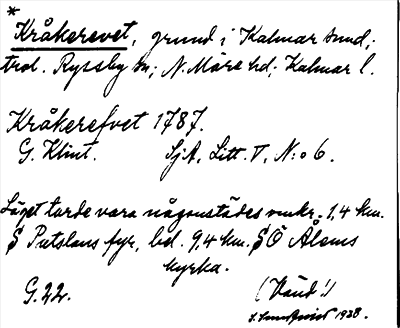 *
Kråkerevet, grund i Kalmar sund;
trol. Ryssby sn; N. Möre hd; Kalmar l.
Kråkerefvet 1787.
G. Klint. SjA, Litt. V, N:o 6.
Läget torde vara någonstädes omkr. 1,4 km.
S Patslans fyr, bel. 9,4 km. SÖ Ålems
kyrka.
G. 22. (Vänd!)
1938.